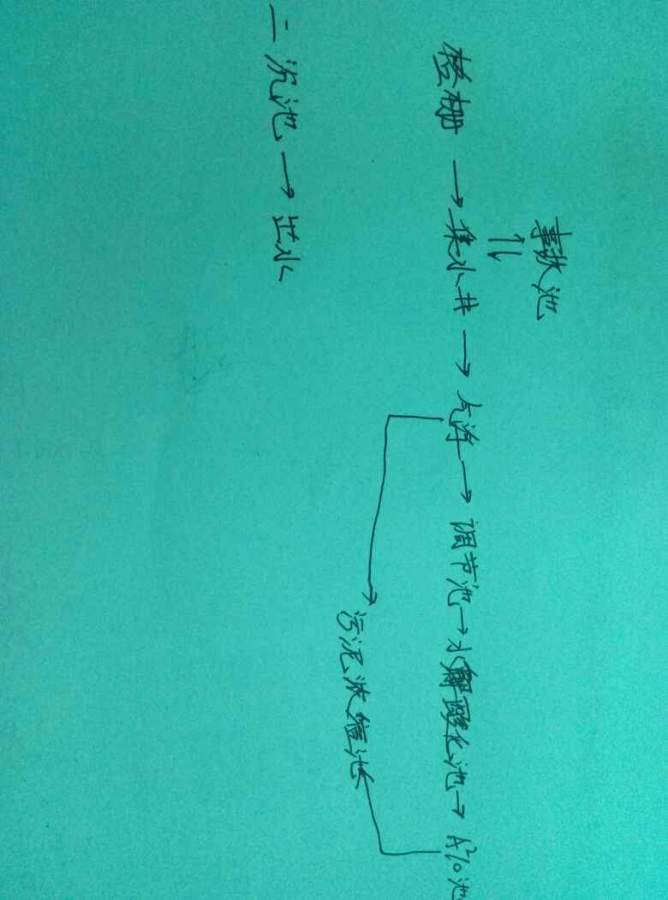 事故池
↑↓
格栅 → 集水井 → 气浮 → 调节池 → 水解酸化池 → A²/O池
污泥浓缩池
二沉池 → 出水